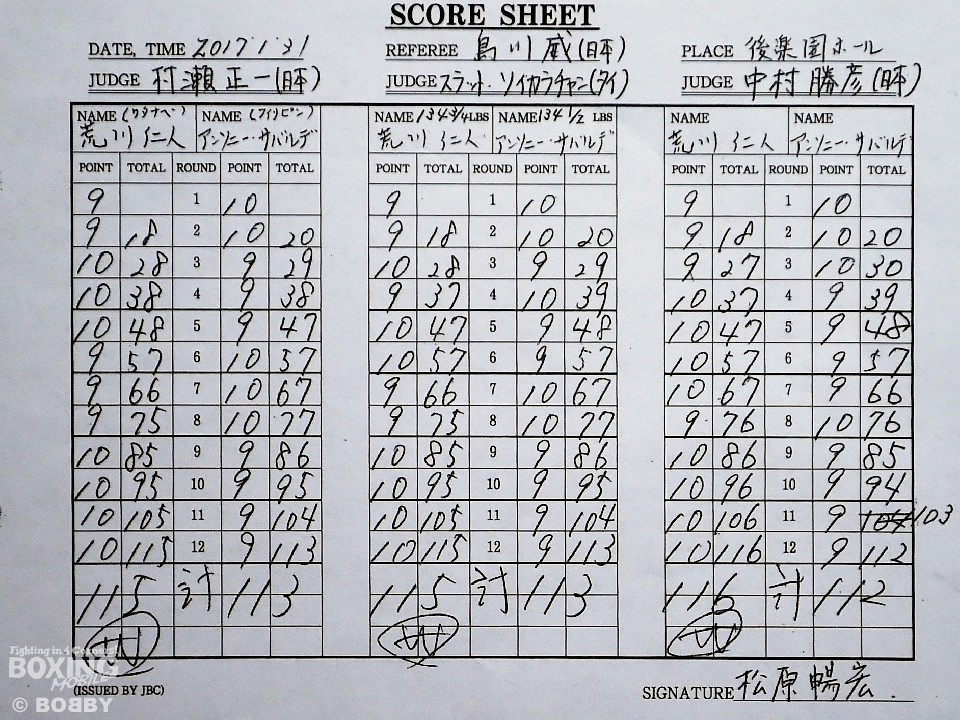 SCORE SHEET
DATE, TIME 2017 1 31 REFEREE 島川 威(日本) PLACE 後楽園ホール
JUDGE 村瀬正一(日本) JUDGE スラット・ソイカラチャン(タイ) JUDGE 中村勝彦(日本)
NAME (ワタナベ) NAME (フィリピン) NAME 134 3/4 LBS NAME 134 1/2 LBS NAME NAME
荒川 仁人 アンソニー・サバルデ 荒川 仁人 アンソニー・サバルデ 荒川 仁人 アンソニー・サバルデ
POINT TOTAL ROUND POINT TOTAL POINT TOTAL ROUND POINT TOTAL POINT TOTAL ROUND POINT TOTAL
9 1 10 9 1 10 9 1 10
9 18 2 10 20 9 18 2 10 20 9 18 2 10 20
10 28 3 9 29 10 28 3 9 29 9 27 3 10 30
10 38 4 9 38 9 37 4 10 39 10 37 4 9 39
10 48 5 9 47 10 47 5 9 48 10 47 5 9 48
9 57 6 10 57 10 57 6 9 57 10 57 6 9 57
9 66 7 10 67 9 66 7 10 67 10 67 7 9 66
9 75 8 10 77 9 75 8 10 77 9 76 8 10 76
10 85 9 9 86 10 85 9 9 86 10 86 9 9 85
10 95 10 9 95 10 95 10 9 95 10 96 10 9 94
10 105 11 9 104 10 105 11 9 104 10 106 11 9 104 103
10 115 12 9 113 10 115 12 9 113 10 116 12 9 112
115 計 113 115 計 113 116 計 112
W W W
Fighting in 4 Corners!
BOXING
MOBILE
(ISSUED BY JBC) SIGNATURE 松原暢宏
© BOBBY